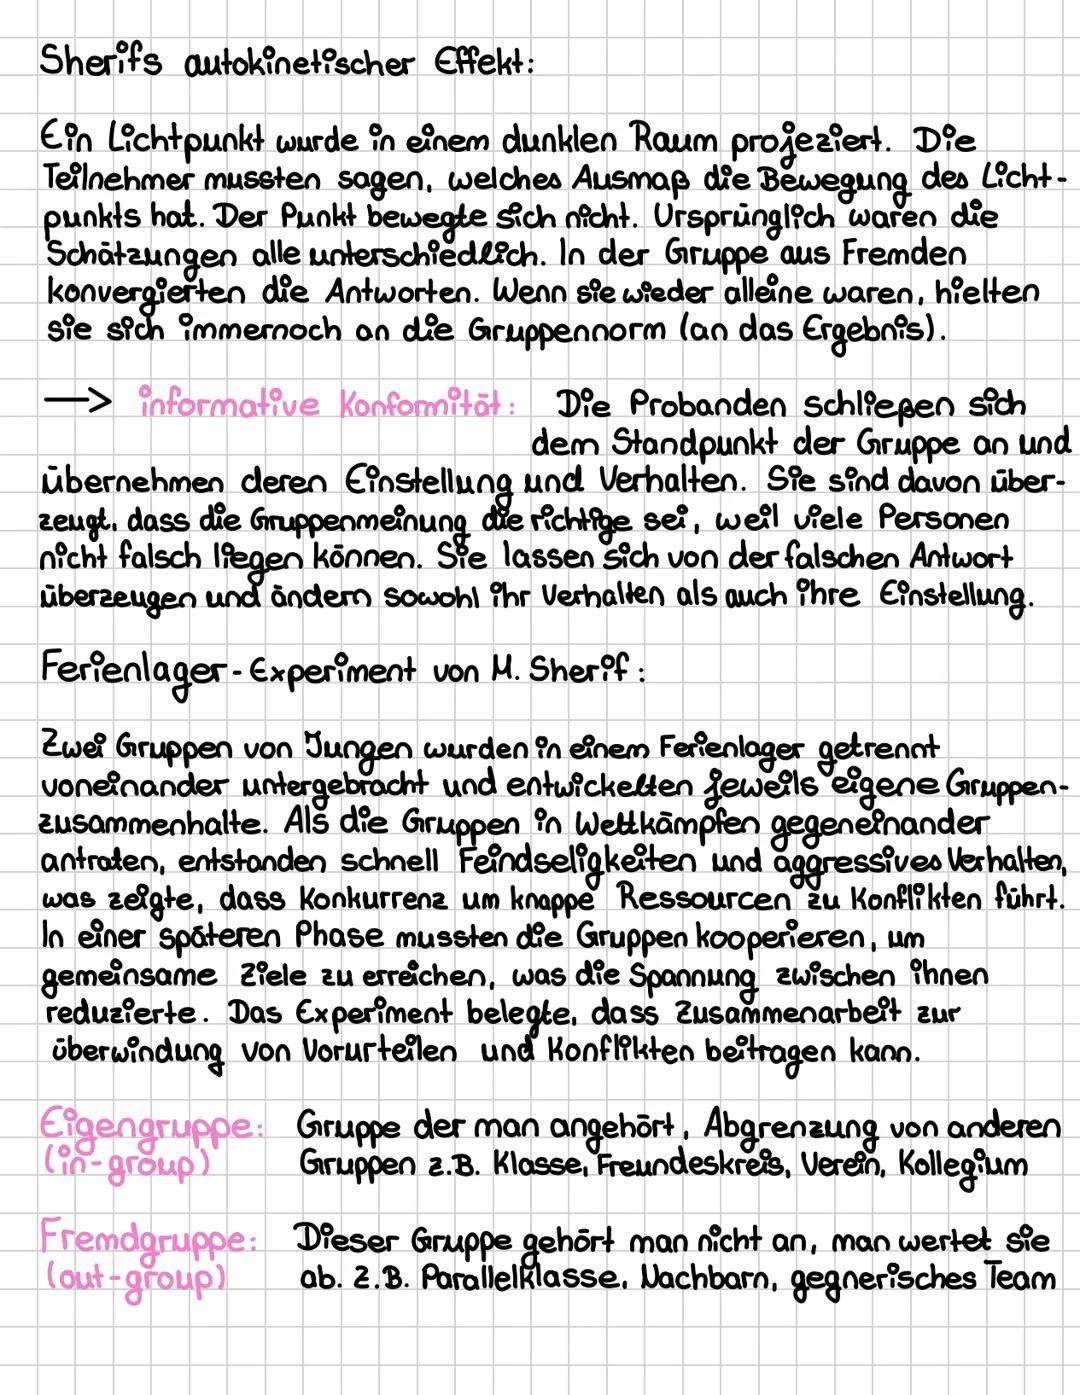 Sherifs autokinetischer Effekt:
Ein Lichtpunkt wurde in einem dunklen Raum projeziert. Die
Teilnehmer mussten sagen, welches Ausmaß die Bewegung des Licht-
punkts hat. Der Punkt bewegte sich nicht. Ursprünglich waren die
Schätzungen alle unterschiedlich. In der Gruppe aus Fremden
konvergierten die Antworten. Wenn sie wieder alleine waren, hielten
sie sich immernoch an die Gruppennorm (an das Ergebnis).
→ informative Konformität: Die Probanden schließen sich
dem Standpunkt der Gruppe an und
übernehmen deren Einstellung und Verhalten. Sie sind davon über-
zeugt, dass die Gruppenmeinung die richtige sei, weil viele Personen
nicht falsch liegen können. Sie lassen sich von der falschen Antwort
überzeugen und ändern sowohl ihr Verhalten als auch ihre Einstellung.
Ferienlager-Experiment von M. Sherif:
Zwei Gruppen von Jungen wurden in einem Ferienlager getrennt
voneinander untergebracht und entwickelten jeweils eigene Gruppen-
zusammenhalte. Als die Gruppen in Wettkämpfen gegeneinander
antraten, entstanden schnell Feindseligkeiten und aggressives Verhalten,
was zeigte, dass Konkurrenz um knappe Ressourcen zu Konflikten führt.
In einer späteren Phase mussten die Gruppen kooperieren, um
gemeinsame Ziele zu erreichen, was die Spannung zwischen ihnen
reduzierte. Das Experiment belegte, dass Zusammenarbeit zur
überwindung von Vorurteilen und Konflikten beitragen kann.
Eigengruppe: Gruppe der man angehört, Abgrenzung von anderen
(in-group) Gruppen z.B. Klasse, Freundeskreis, Verein, Kollegium
Fremdgruppe: Dieser Gruppe gehört man nicht an, man wertet sie
(out-group) ab. Z.B. Parallelklasse, Nachbarn, gegnerisches Team